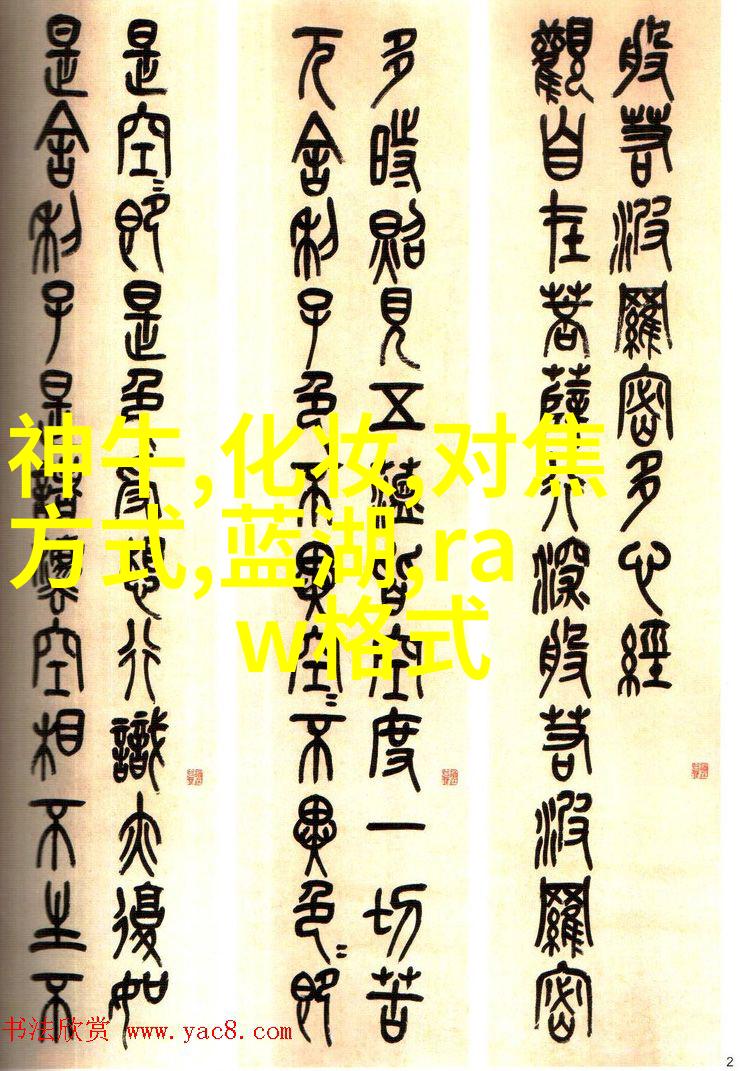 般若波羅密多心經
觀自在菩薩行深般若波羅密
多時照見五蘊皆空度一切苦
厄舍利子色不異空〻不異色〻即
是空〻即是色受想行識亦復如
是舍利子是諸灋空相不生不
神牛,化妆,对焦
方式,蓝湖,ra
w格式
书法欣赏 www.yac8.com
2